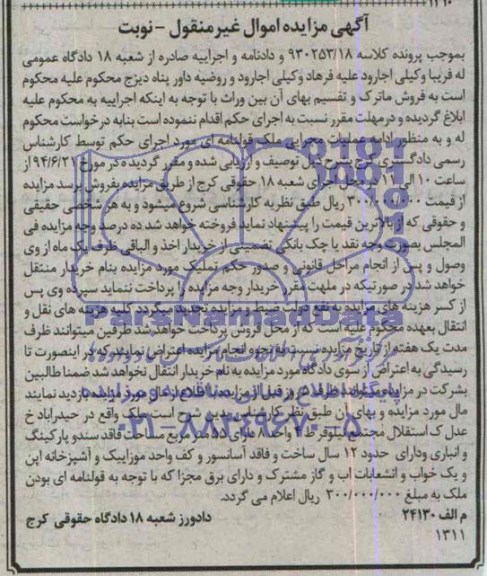 آگهی مزایده اموال غیر منقول - نوبت
بموجب پرونده کلاسه ۹۳۰۲۵۳/۱۸ و دادنامه و اجراییه صادره از شعبه ۱۸ دادگاه عمومی
له فریبا وکیلی اجارود علیه فرهاد وکیلی اجارود و روضیه داور پناه دیزج محکوم علیه محکوم
است به فروش ماترک و تقسیم بهای آن بین وراث با توجه به اینکه اجراییه به محکوم علیه
ابلاغ گردیده و در مهلت مقرر نسبت به اجرای حکم اقدام ننموده است بنابه درخواست محکوم
له و به منظور ادامه عملیات اجرایی ملک قولنامه ای مورد اجرای حکم توسط کارشناس
رسمی دادگستری کرج بشرح ذیل توصیف و ارزیابی شده و مقرر گردیده در مورخ ۹۴/۶/۲۱ از
ساعت ۱۰ الی ۱۱ در محل اجرای شعبه ۱۸ حقوقی کرج از طریق مزایده بفروش برسد مزایده
از قیمت ۳۰۰/۰۰۰/۰۰۰ ریال طبق نظریه کارشناسی شروع میشود و به هر شخصی حقیقی
و حقوقی که از بالاترین قیمت را پیشنهاد نماید فروخته خواهد شد ده درصد وجه مزایده فی
المجلس بصورت وجه نقد یا چک بانکی تضمینی از خریدار اخذ و الباقی ظرف یک ماه از وی
وصول و پس از انجام مراحل قانونی و صدور حکم تملیک مورد مزایده بنام خریدار منتقل
خواهد شد در صورتیکه در ملهت مقرر خریدار وجه مزایده را پرداخت ننماید سپرده وی پس
از کسر هزینه های مزایده به نفع دولت ضبط و مزایده تجدید میگردد کلیه هزینه های نقل و
انتقال بعهده محکوم علیه است که از محل فروش پرداخت خواهد شد طرفین میتوانند ظرف
مدت یک هفته از تاریخ مزایده نسبت به نحوه انجام مزایده اعتراض نمایند که در اینصورت تا
رسیدگی به اعتراض از سوی دادگاه مورد مزایده به نام خریدار انتقال نخواهد شد ضمنا طالبین
بشرکت در مزایده میتوانند ظرف ۵ روز قبل از مزایده از مال مورد مزایده بازدید نمایند
مال مورد مزایده و بهای آن طبق نظر کارشناسی بدین شرح است ملک واقع در حیدراباد خ
عدل ک استقلال مجتمع نیلوفر ط ۴ واحد ۸ دارای ۵۵ متر مربع مساحت فاقد سند و پارکینگ
و انباری ودارای حدود ۱۲ سال ساخت و فاقد آسانسور و کف واحد موزاییک و آشپزخانه اپن
و یک خواب و انشعابات اب و گاز مشترک و دارای برق مجزا که با توجه به قولنامه ای بودن
ملک به مبلغ ۳۰۰/۰۰۰/۰۰۰ ریال اعلام می گردد.
م الف ۲۴۱۳۰ دادورز شعبه ۱۸ دادگاه حقوقی کرج
۱۳۱۱
ParsNamadData
پایگاه اطلاع رسانی مناقصه و مزایده
۰۲۱-۸۸۳۴۹۶۷۰-۵